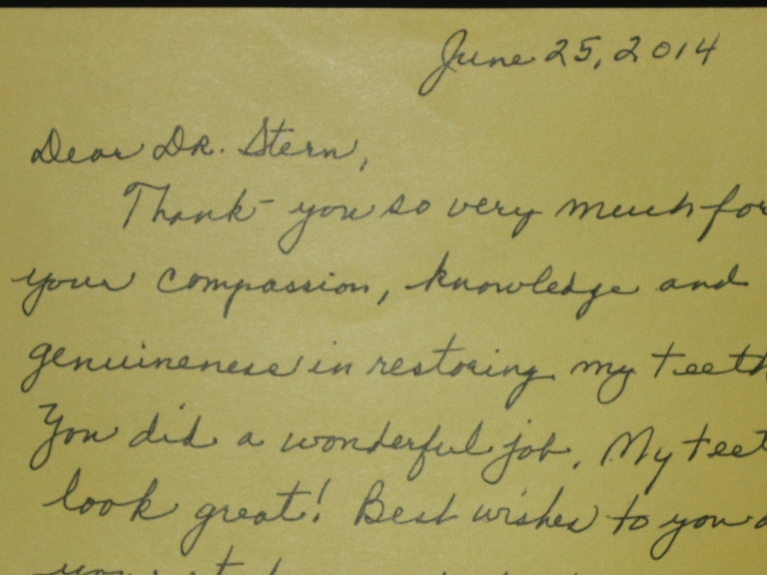 June 25, 2014
Dear DR. Stern,
Thank you so very much for
your compassion, knowledge and
genuineness in restoring my teeth
You did a wonderful job. My teet
look great! Best wishes to you a